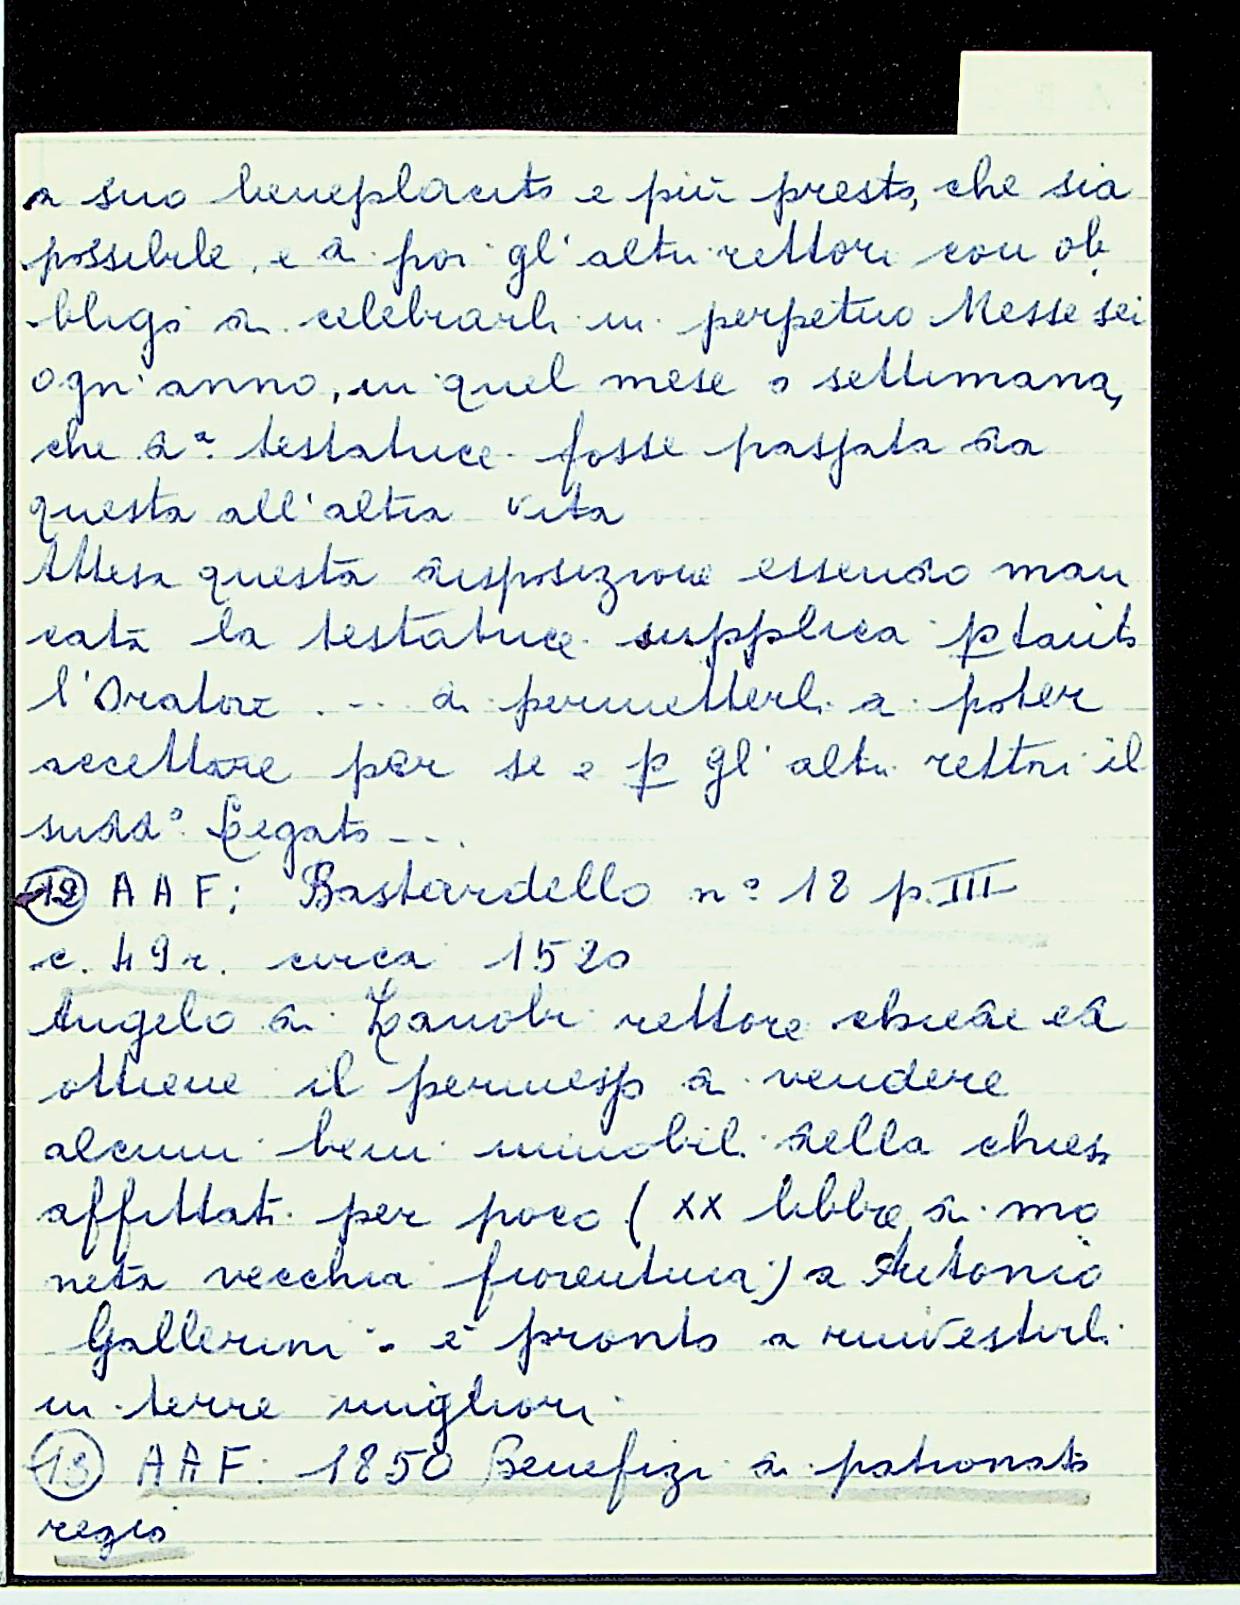 a suo beneplacito e più presto, che sia
possibile, e di poi gl'altri rettori con ob
bligo di celebrarli in perpetuo Messe sei
ogn'anno, in quel mese o settimana,
che dª. testatrice fosse passata da
questa all'altra vita
Attesa questa disposizione essendo man
cata la testatrice supplica p tanto
l'Oratore .--. di permetterli a poter
accettare per se e p gl'altri rettori il
sudd° Legato --.
12 AAF: Bastardello n° 12 p. III
c. 49r. circa 1520
Angelo di Zanobi rettore chiede ed
ottiene il permesso di vendere
alcuni beni immobili della chiesa
affittati per poco (XX libbre di mo
neta vecchia fiorentina) a Antonio
Gallerini - e' pronto a rinvestirli
in terre migliori
13 AAF. 1850 Benefizi di patronato
regio